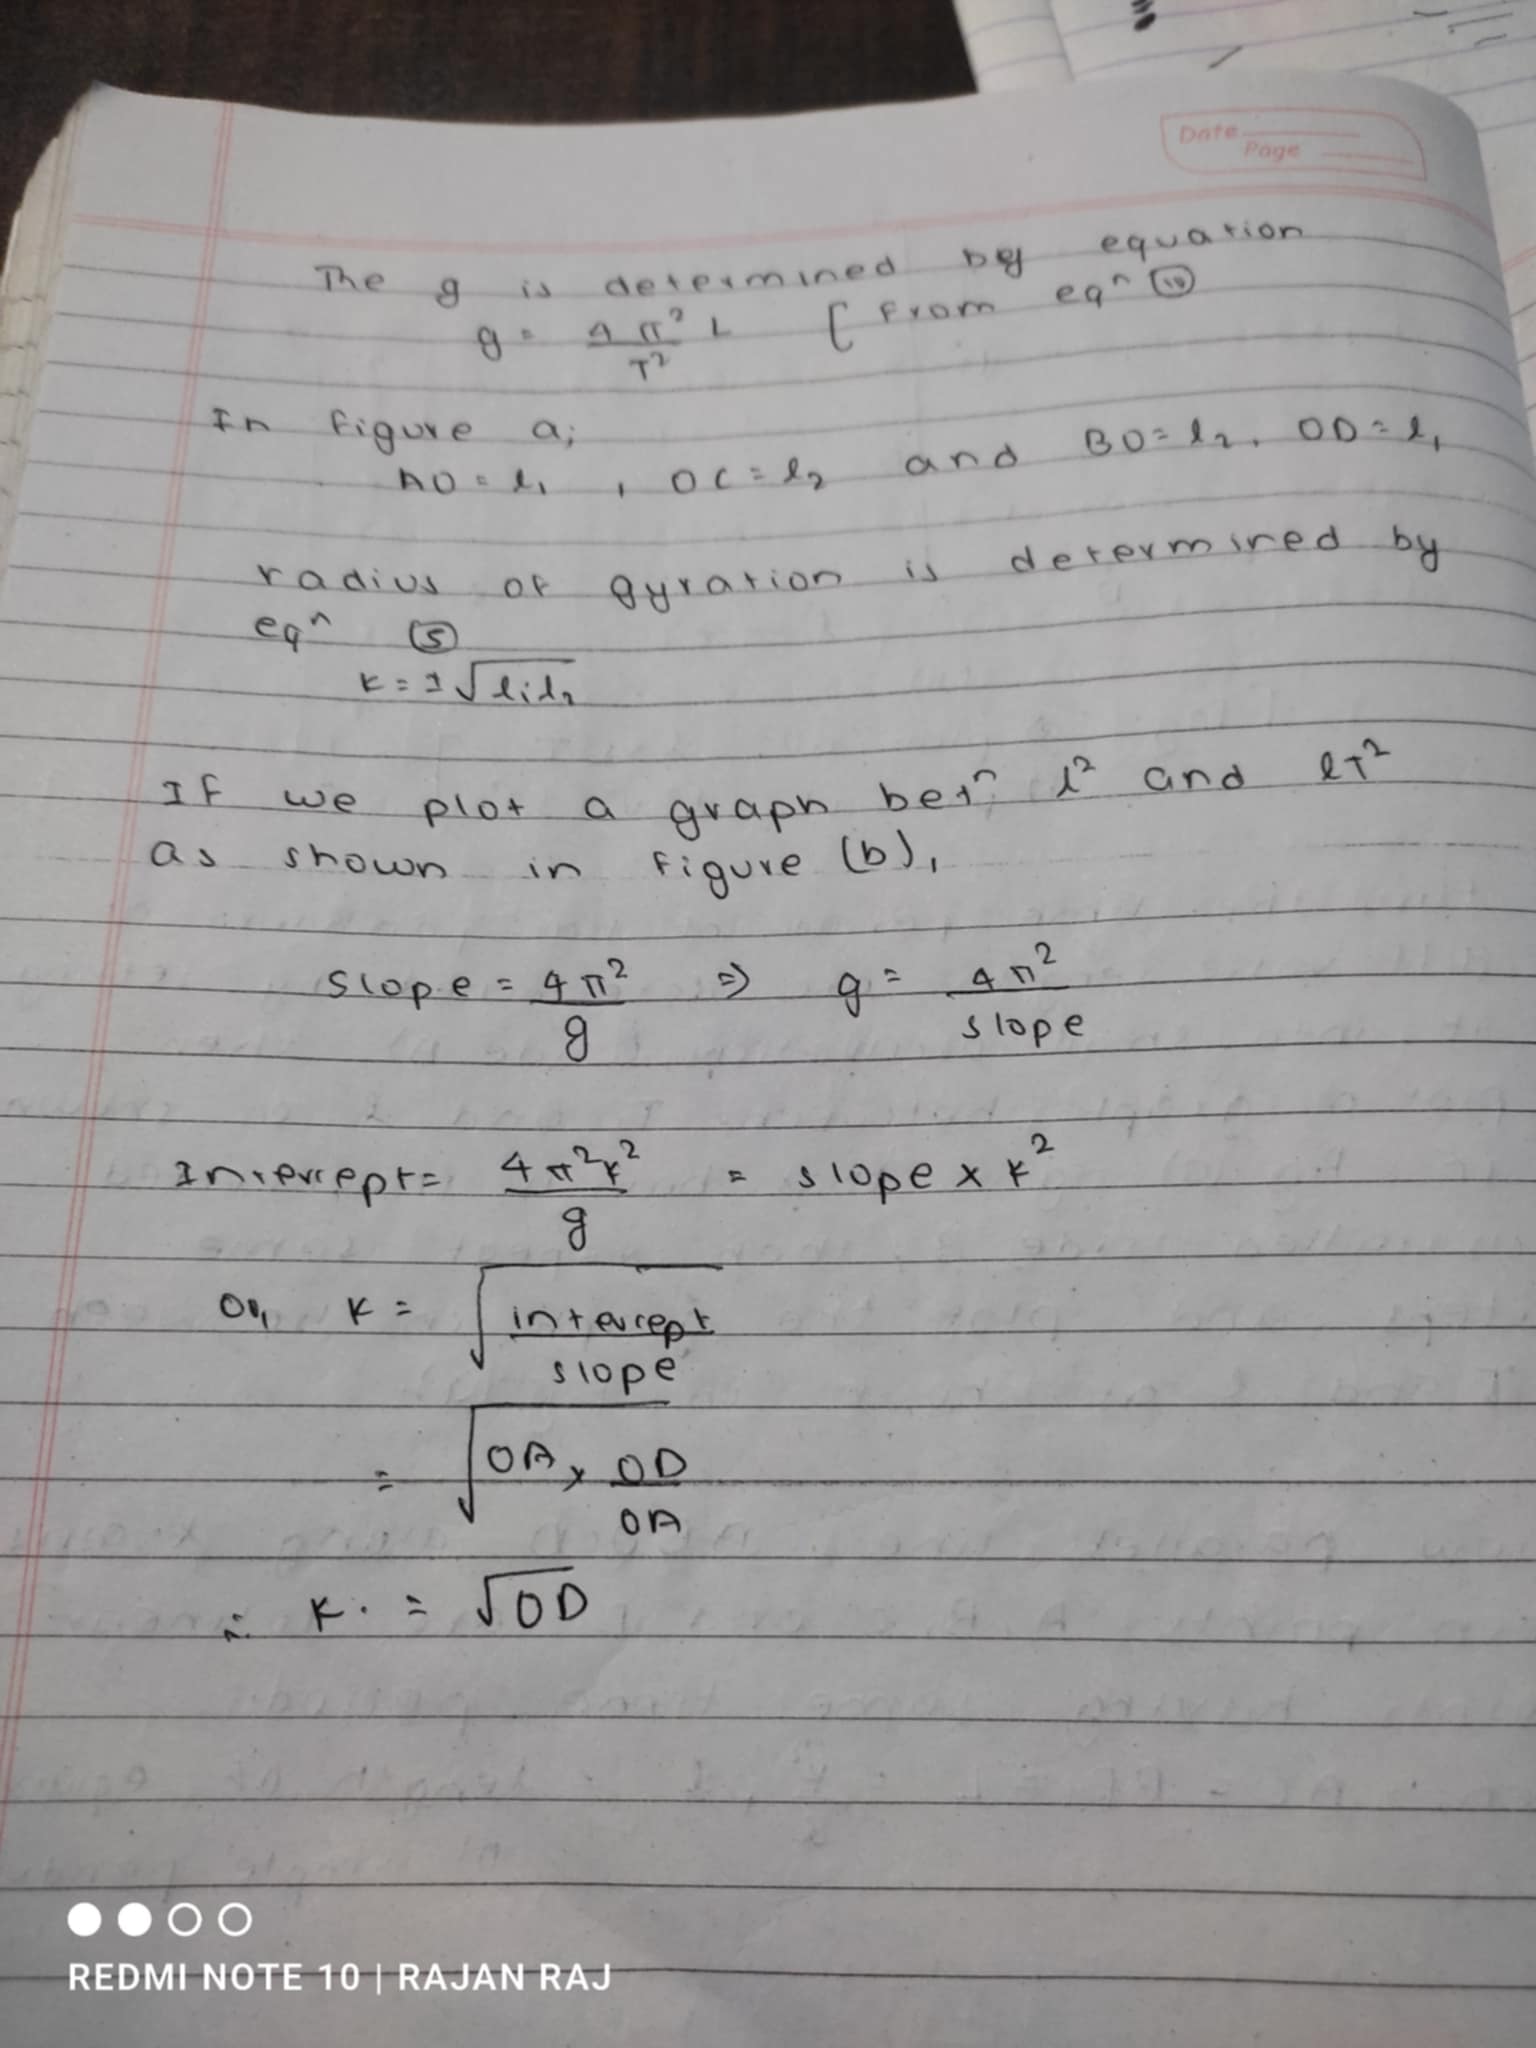 Date
Page
The g is determined by equation
g = 4π² L / T² [ From eqⁿ (10)
In figure a;
AO = l₁ , OC = l₂ and BO = l₂, OD = l₁
radius of gyration is determined by
eqⁿ (5)
K = ± √l₁l₂
If we plot a graph betⁿ l² and lT²
as shown in figure (b),
slope = 4π² / g ⇒ g = 4π² / slope
Intercept = 4π²k² / g = slope x k²
Or, K = √(intercept / slope)
= √(OA x OD / OA)
∴ K. = √OD
REDMI NOTE 10 | RAJAN RAJ